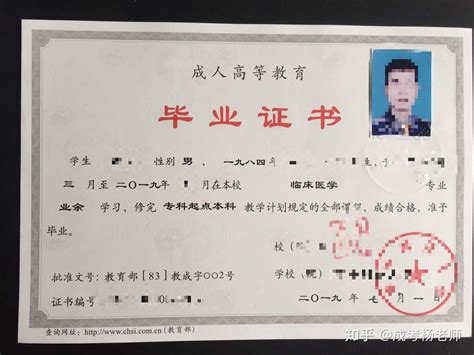 成人高等教育
毕业证书
学生 性别 男， 一九八四年
三 月至 二〇一九年 月在本校 临床医学 专业
业余 学习，修完 专科起点本科 教学计划规定的全部课程，成绩合格，准予
毕业。
校（
批准文号：教育部［83］教成字002号
学校（院）
证书编号
二〇一九年 七月 一日
查询网址：http://www.chsi.com.cn(教育部)
知乎 @成考杨老师